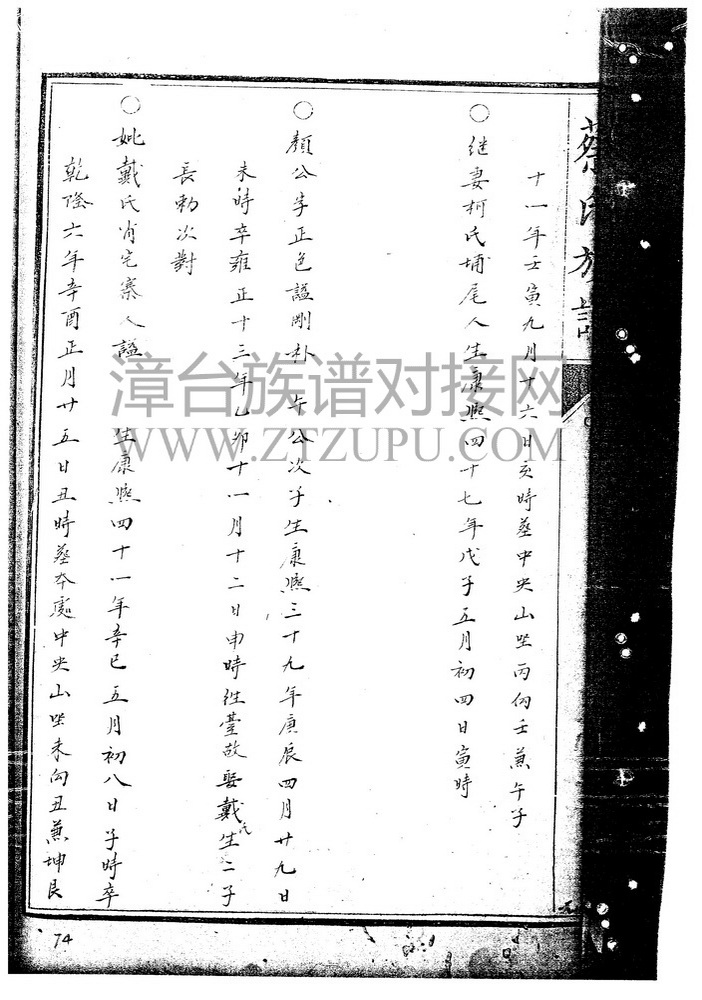 蔡氏族譜
十一年壬寅九月十六日亥時墓中央山坐丙向壬兼午子
○继妻柯氏埔尾人生康熙四十七年戊子五月初四日寅時
○顏公字正色謚剛朴 午公次子生康熙三十九年庚辰四月廿九日
未時卒雍正十三年乙卯十一月十二日申時往臺故娶戴氏生二子
長勅次對
○妣戴氏肖宅寨人謚 生康熙四十一年辛巳五月初八日子時卒
乾隆六年辛酉正月廿五日丑時墓本處中央山坐未向丑兼坤艮
74
漳台族谱对接网
WWW.ZTZUPU.COM